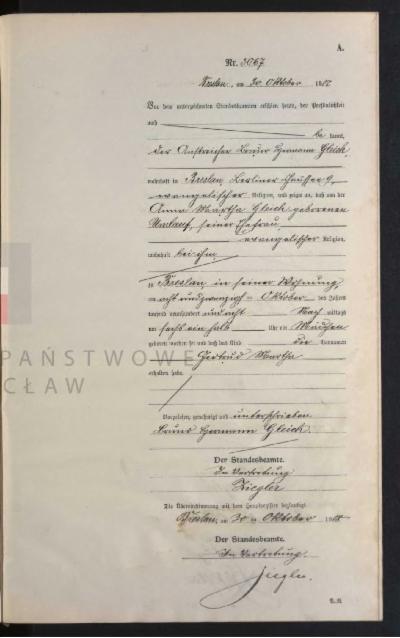 A.
Nr. 3067
Breslau, am 30 Oktober 19
Vor dem unterzeichneten Standesbeamten erschien heute, der Persönlichkeit
nach
be kannt,
der Anstreicher Bruno Hermann Gleich,
wohnhaft in Breslau, Berliner Chaussee 9,
evangelischer Religion, und zeigte an, daß von der
Anna Martha Gleich geborenen
seiner Ehefrau,
evangelischer Religion,
wohnhaft bei ihm
zu Breslau in seiner Wohnung,
am acht und zwanzigsten Oktober des Jahres
tausend neunhundert und acht Nach mittags
um sechs ein halb Uhr ein Mädchen
geboren worden sei und daß das Kind die Vornamen
Gertrud Martha
erhalten habe.
Vorgelesen, genehmigt und unterschrieben
Bruno Hermann Gleich.
Der Standesbeamte.
In Vertretung
Ziegler
Die Übereinstimmung mit dem Hauptregister beglaubigt
Breslau, am 30 ten Oktober 19
Der Standesbeamte.
In Vertretung.
Ziegler.
PAŃSTWOWE
CŁAW